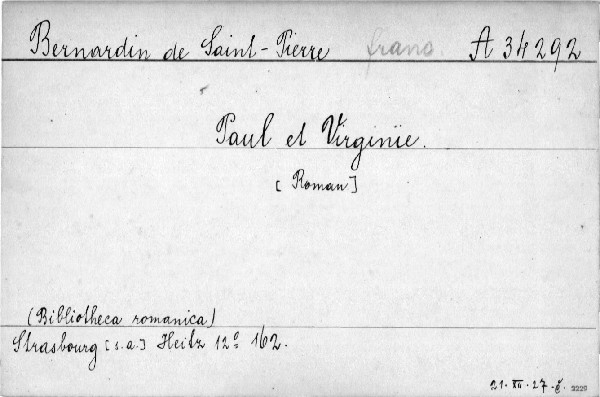 Bernardin de Saint-Pierre franc. A 34292
Paul et Virginie.
[Roman]
(Bibliotheca romanica)
Strasbourg [s.a.] Heitz 12° 162.
21. XII. 27.